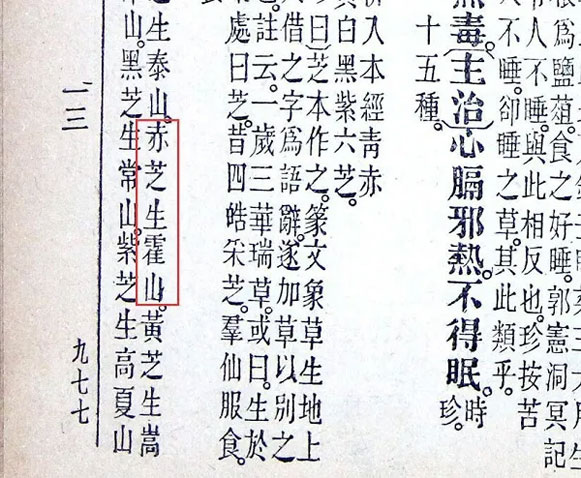 爲鹽葅。食之好睡。郭憲洞冥記
人不睡。與此相反也。珍按苦
人不睡。卻睡之草。其此類乎。
毒。〔主治〕心膈邪熱。不得眠。時珍。
十五種。
入本經青赤
白黑紫六芝。
曰〕芝本作之。篆文象草生地上
人借之字爲語辭。遂加草以別之
也。註云。一歲三華瑞草。或曰。生於
處曰芝。昔四皓采芝。羣仙服食。
芝生泰山。赤芝生霍山。黃芝生嵩
山。黑芝生常山。紫芝生高夏山
一三
九七七